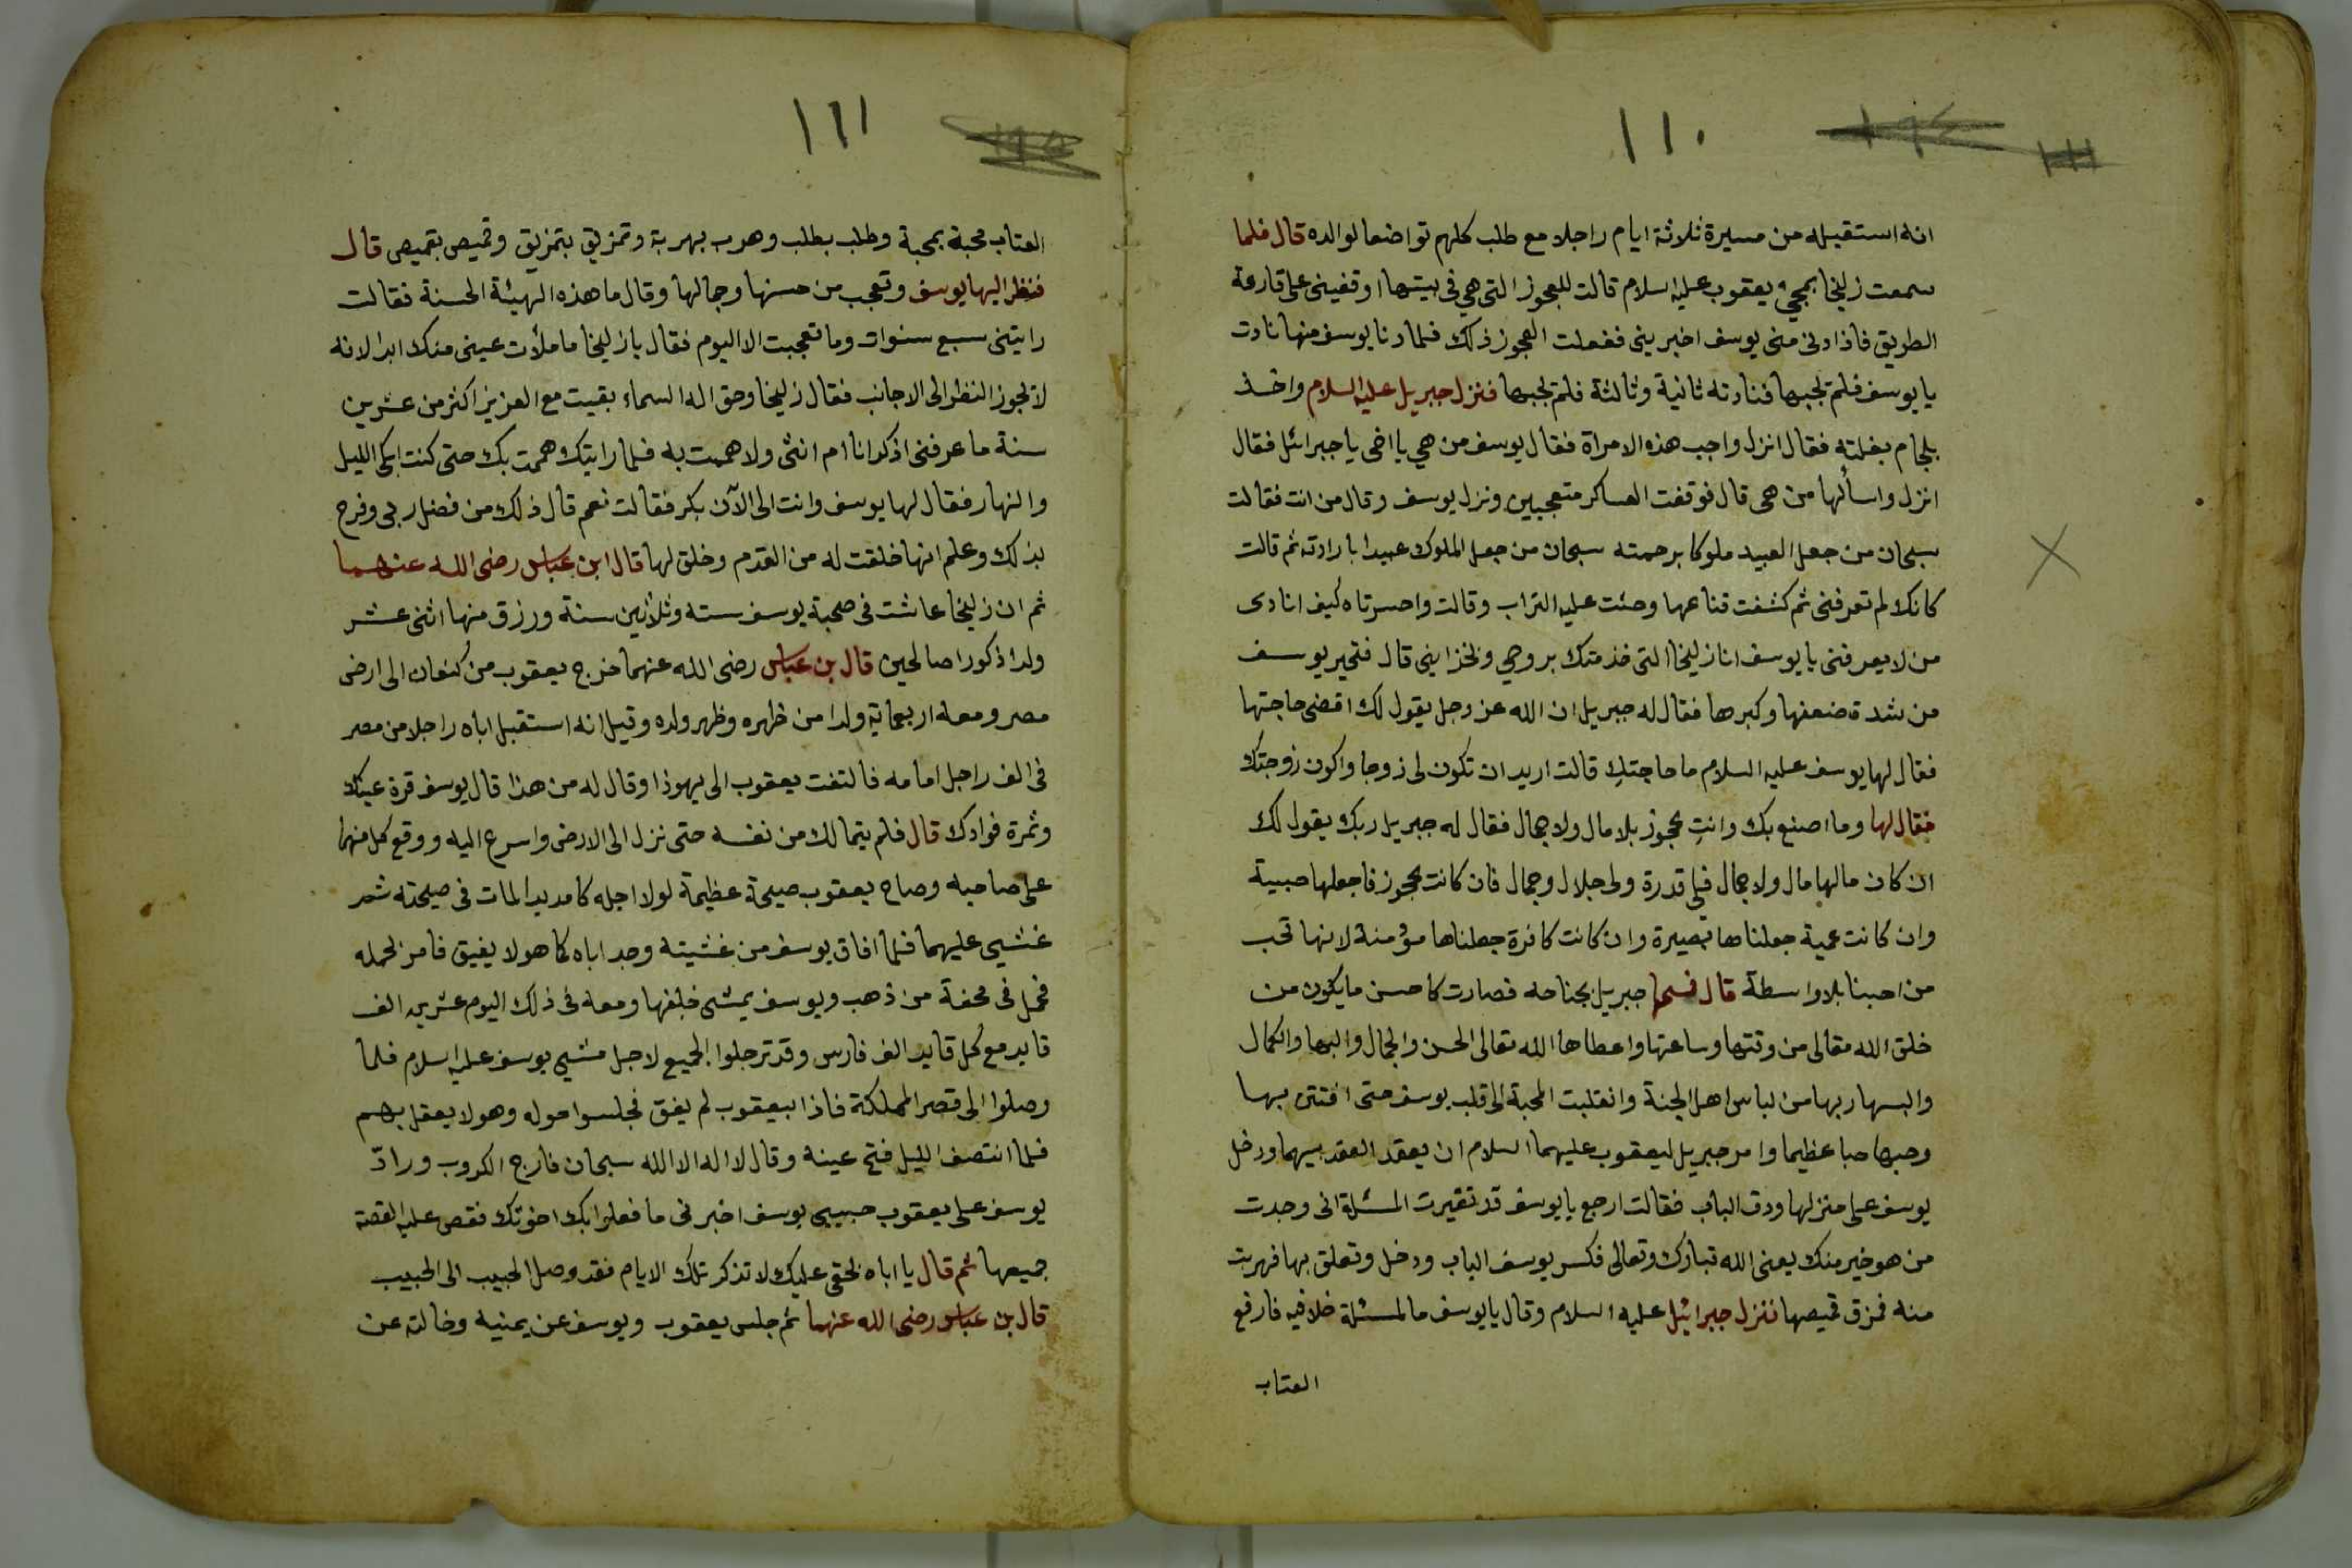 ١١٠
انه استقبله من مسيرة ثلاثة ايام راجلا مع طلب كلهم تواضعا لوالده قال فلما
سمعت زليخا بمجيء يعقوب عليه السلام قالت للعجوز التي هي في بيتها اوقفيني على قارعة
الطريق فاذا دنى منى يوسف اخبريني ففعلت العجوز ذلك فلما دنا يوسف منها نادت
يا يوسف فلم تجبها فنادته ثانية وثالثة فلم تجبها فنزل جبريل عليه السلام واخذ
بلجام بغلته فقال انزل واجب هذه الامراة فقال يوسف من هي يا اخى يا جبرائل فقال
انزل واسألها من هى قال فوقفت العساكر متعجبين ونزل يوسف وقال من انت فقالت
سبحان من جعل العبيد ملوكا برحمته سبحان من جعل الملوك عبيدا بارادته ثم قالت
كانك لم تعرفنى ثم كشفت قناعها وحثت عليه التراب وقالت واحسرتاه كيف انادى
من لا يعرفنى يا يوسف انا زليخا التى خدمتك بروحي وبخزايني قال فتحير يوسف
من شدة ضعفها وكبرها فقال له جبريل ان الله عز وجل يقول لك اقضى حاجتها
فقال لها يوسف عليه السلام ما حاجتك قالت اريد ان تكون لى زوجا واكون زوجتك
فقال لها وما اصنع بك وانت عجوز بلا مال ولا جمال فقال له جبريل ربك يقول لك
ان كان مالها مال ولا جمال فلى قدرة ولى جلال وجمال فان كانت عجوز فاجعلها صبية
وان كانت عمية جعلناها بصيرة وان كانت كافرة جعلناها مؤمنة لانها تحب
من احبنا بلا واسطة قال فمسها جبريل بجناحه فصارت كاحسن ما يكون من
خلق الله تعالى من وقتها وساعتها واعطاها الله تعالى الحسن والجمال والبها والكمال
والبسها ربها من لباس اهل الجنة وانقلبت المحبة الى قلب يوسف حتى افتتن بها
وحبها حبا عظيما وامر جبريل ليعقوب عليهما السلام ان يعقد العقد بينهما ودخل
يوسف على منزلها ودق الباب فقالت ارجع يا يوسف قد تغيرت المسئلة انى وجدت
من هو خير منك يعنى الله تبارك وتعالى فكسر يوسف الباب ودخل وتعلق بها فهربت
منه فمزق قميصها فنزل جبرائيل عليه السلام وقال يا يوسف ما لمسئلة خلافيه فارفع
العتاب
١١١
العتاب محبة بمحبة وطلب بطلب وهرب بهربة وتمزيق بتمزيق وقميص بقميص قال
فنظر اليها يوسف وتعجب من حسنها وجمالها وقال ما هذه الهيئة الحسنة فقالت
رايتنى سبع سنوات وما تعجبت الا اليوم فقال يا زليخا ما ملأت عينى منك ابدا لانه
لا تجوز النظر الى الاجانب فقال زليخا وحق اله السماء بقيت مع العزيز اكثر من عشرين
سنة ما عرفنى اذكر انا ام انثى ولا هممت به فلما رايتك هممت بك حتى كنت ابكى الليل
والنهار فقال لها يوسف وانت الى الآن بكر فقالت نعم قال ذلك من فضل ربى وفرح
بذلك وعلم انها خلقت له من القدم وخلق لها قال ابن عباس رضى الله عنهما
ثم ان زليخا عاشت فى صحبة يوسف ستة وثلاثين سنة ورزق منها اثنى عشر
ولدا ذكورا صالحين قال بن عباس رضى الله عنهما خرج يعقوب من كنعان الى ارض
مصر ومعه اربعماية ولدا من ظهره وظهر ولده وقيل انه استقبل اباه راجلا من مصر
فى الف راجل امامه فالتفت يعقوب الى يهوذا وقال له من هذا قال يوسف قرة عينك
وثمرة فوادك قال فلم يتمالك من نفسه حتى نزل الى الارض واسرع اليه ووقع كل منهما
على صاحبه وصاح يعقوب صيحة عظيمة لولا اجله كا مديدا لمات فى صيحته ثم
غشيى عليهما فلما افاق يوسف من غشيته وجد اباه كما هو لا يفيق فامر بحمله
فحمل فى محفة من ذهب ويوسف يمشى خلفها ومعه فى ذلك اليوم عشرين الف
قايد مع كل قايد الف فارس وقد ترجلوا الجميع لاجل مشيى يوسف عليه السلام فلما
وصلوا الى قصر المملكة فاذا ابيعقوب لم يفق فجلسوا حوله وهو لا يعقل بهم
فلما انتصف الليل فتح عينه وقال لا اله الا الله سبحان فارج الكروب ورادّ
يوسف على يعقوب حبيبى يوسف اخبرنى ما فعلوا بك اخوتك فقص عليه القصة
جميعها ثم قال يا اباه بحقى عليك لا تذكر تلك الايام فقد وصل الحبيب الى الحبيب
قال بن عباس رضى الله عنهما ثم جلس يعقوب ويوسف عن يمنيه وخالته عن